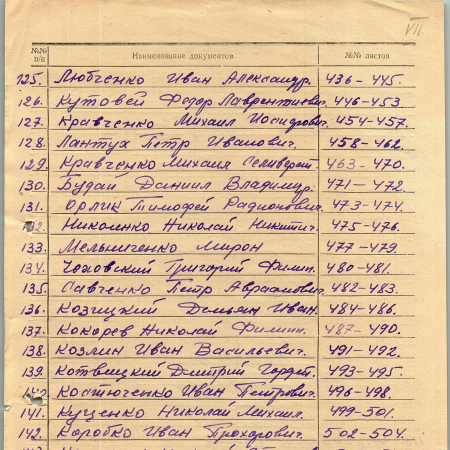 VII
№№ п/п Наименование документов №№ листов
125. Любченко Иван Александр. 436-445.
126. Кутовей Федор Лаврентиевич. 446-453
127. Кравченко Михаил Иосифович. 454-457.
128. Лантух Петр Иванович. 458-462.
129. Кравченко Михаил Селиверст. 463-470.
130. Будай Даниил Владимир. 471-472.
131. Орлик Тимофей Радионович. 473-474.
132. Николенко Николай Никитич. 475-476.
133. Мельниченко Мирон 477-479
134. Чеховский Григорий Филип. 480-481.
135. Савченко Петр Авраамович. 482-483.
136. Козицкий Демьян Иван. 484-486.
137. Кокарев Николай Филип. 487-490.
138. Козлин Иван Васильевич. 491-492.
139. Котвицкий Дмитрий Гордет. 493-495.
140. Костюченко Иван Петрович. 496-498.
141. Куценко Николай Михаил. 499-501.
142. Коробко Иван Прохорович. 502-504.